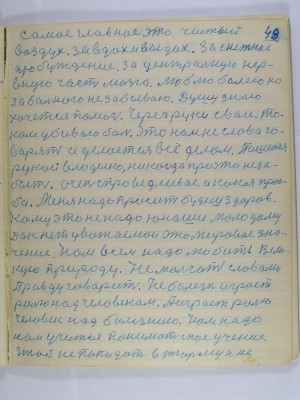 48
Самое главное это чистый
воздух. За вдох и выдох. За снежное
пробуждение. За центральную нер-
вную часть мозга. Люблю болею но
за больного не забываю. Душу знаю
хочется помочь. Через руки свои, то-
ком убиваю боль. Это нам не слова го-
варят а делается всё делом. Пишется
рукой владыко, никогда про это не за-
быть. очен справедливая и
ба. Меня надо просит будеш здоров.
Кому это не надо юноши молодому
Дак нет уважаемои это мировое зна-
чение. Нам всем надо любить Вели-
кую природу. Не молчат словами
Правду говорит. Не болезн играет
ролю над человеком. А играет ролю
человек над болезнию. Нам надо
нам учится понимат мое учение
чтоб не попадат в тюрму и не